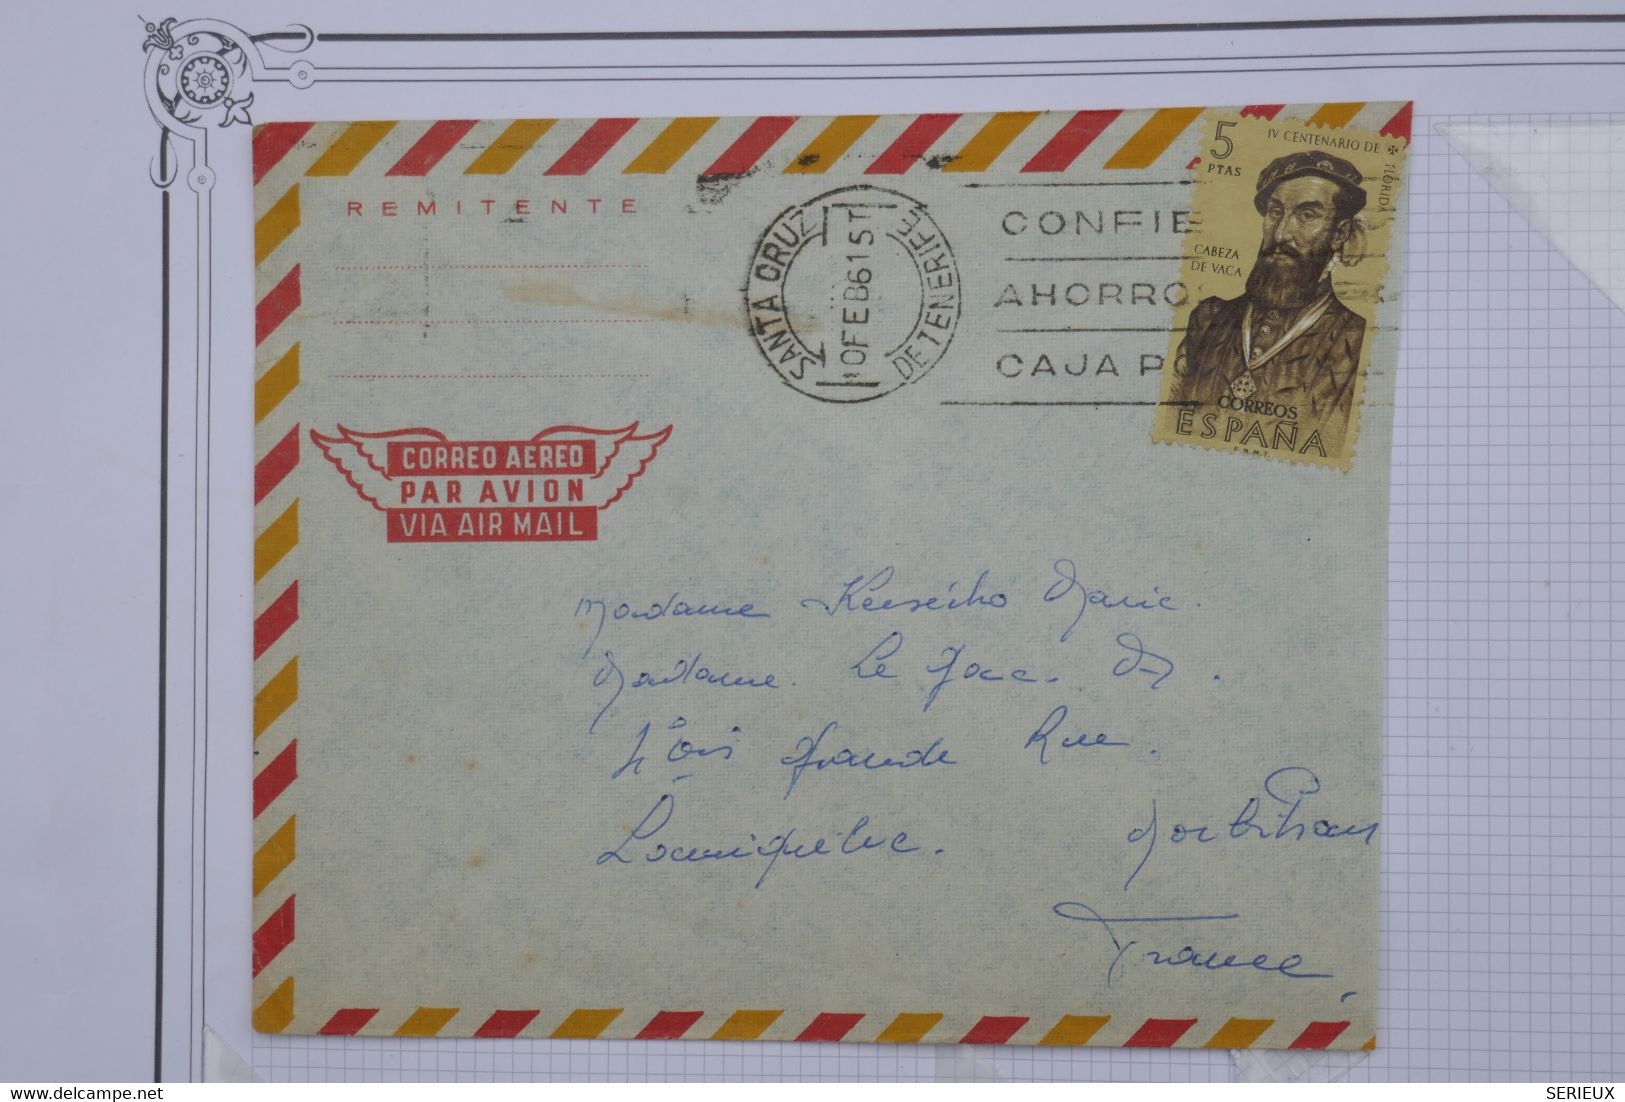 REMITENTE
SANTA CRUZ
DE TENERIFE
10 FEB 61 5T
CONFIE
AHORRO
CAJA PO
5
PTAS
IV CENTENARIO DE
FLORIDA
CABEZA
DE VACA
CORREOS
ESPAÑA
F.N.M.T.
CORREO AEREO
PAR AVION
VIA AIR MAIL
Madame Marie.
Madame. Le
Grande Rue.
Locmiquélic. Morbihan
France
SERIEUX